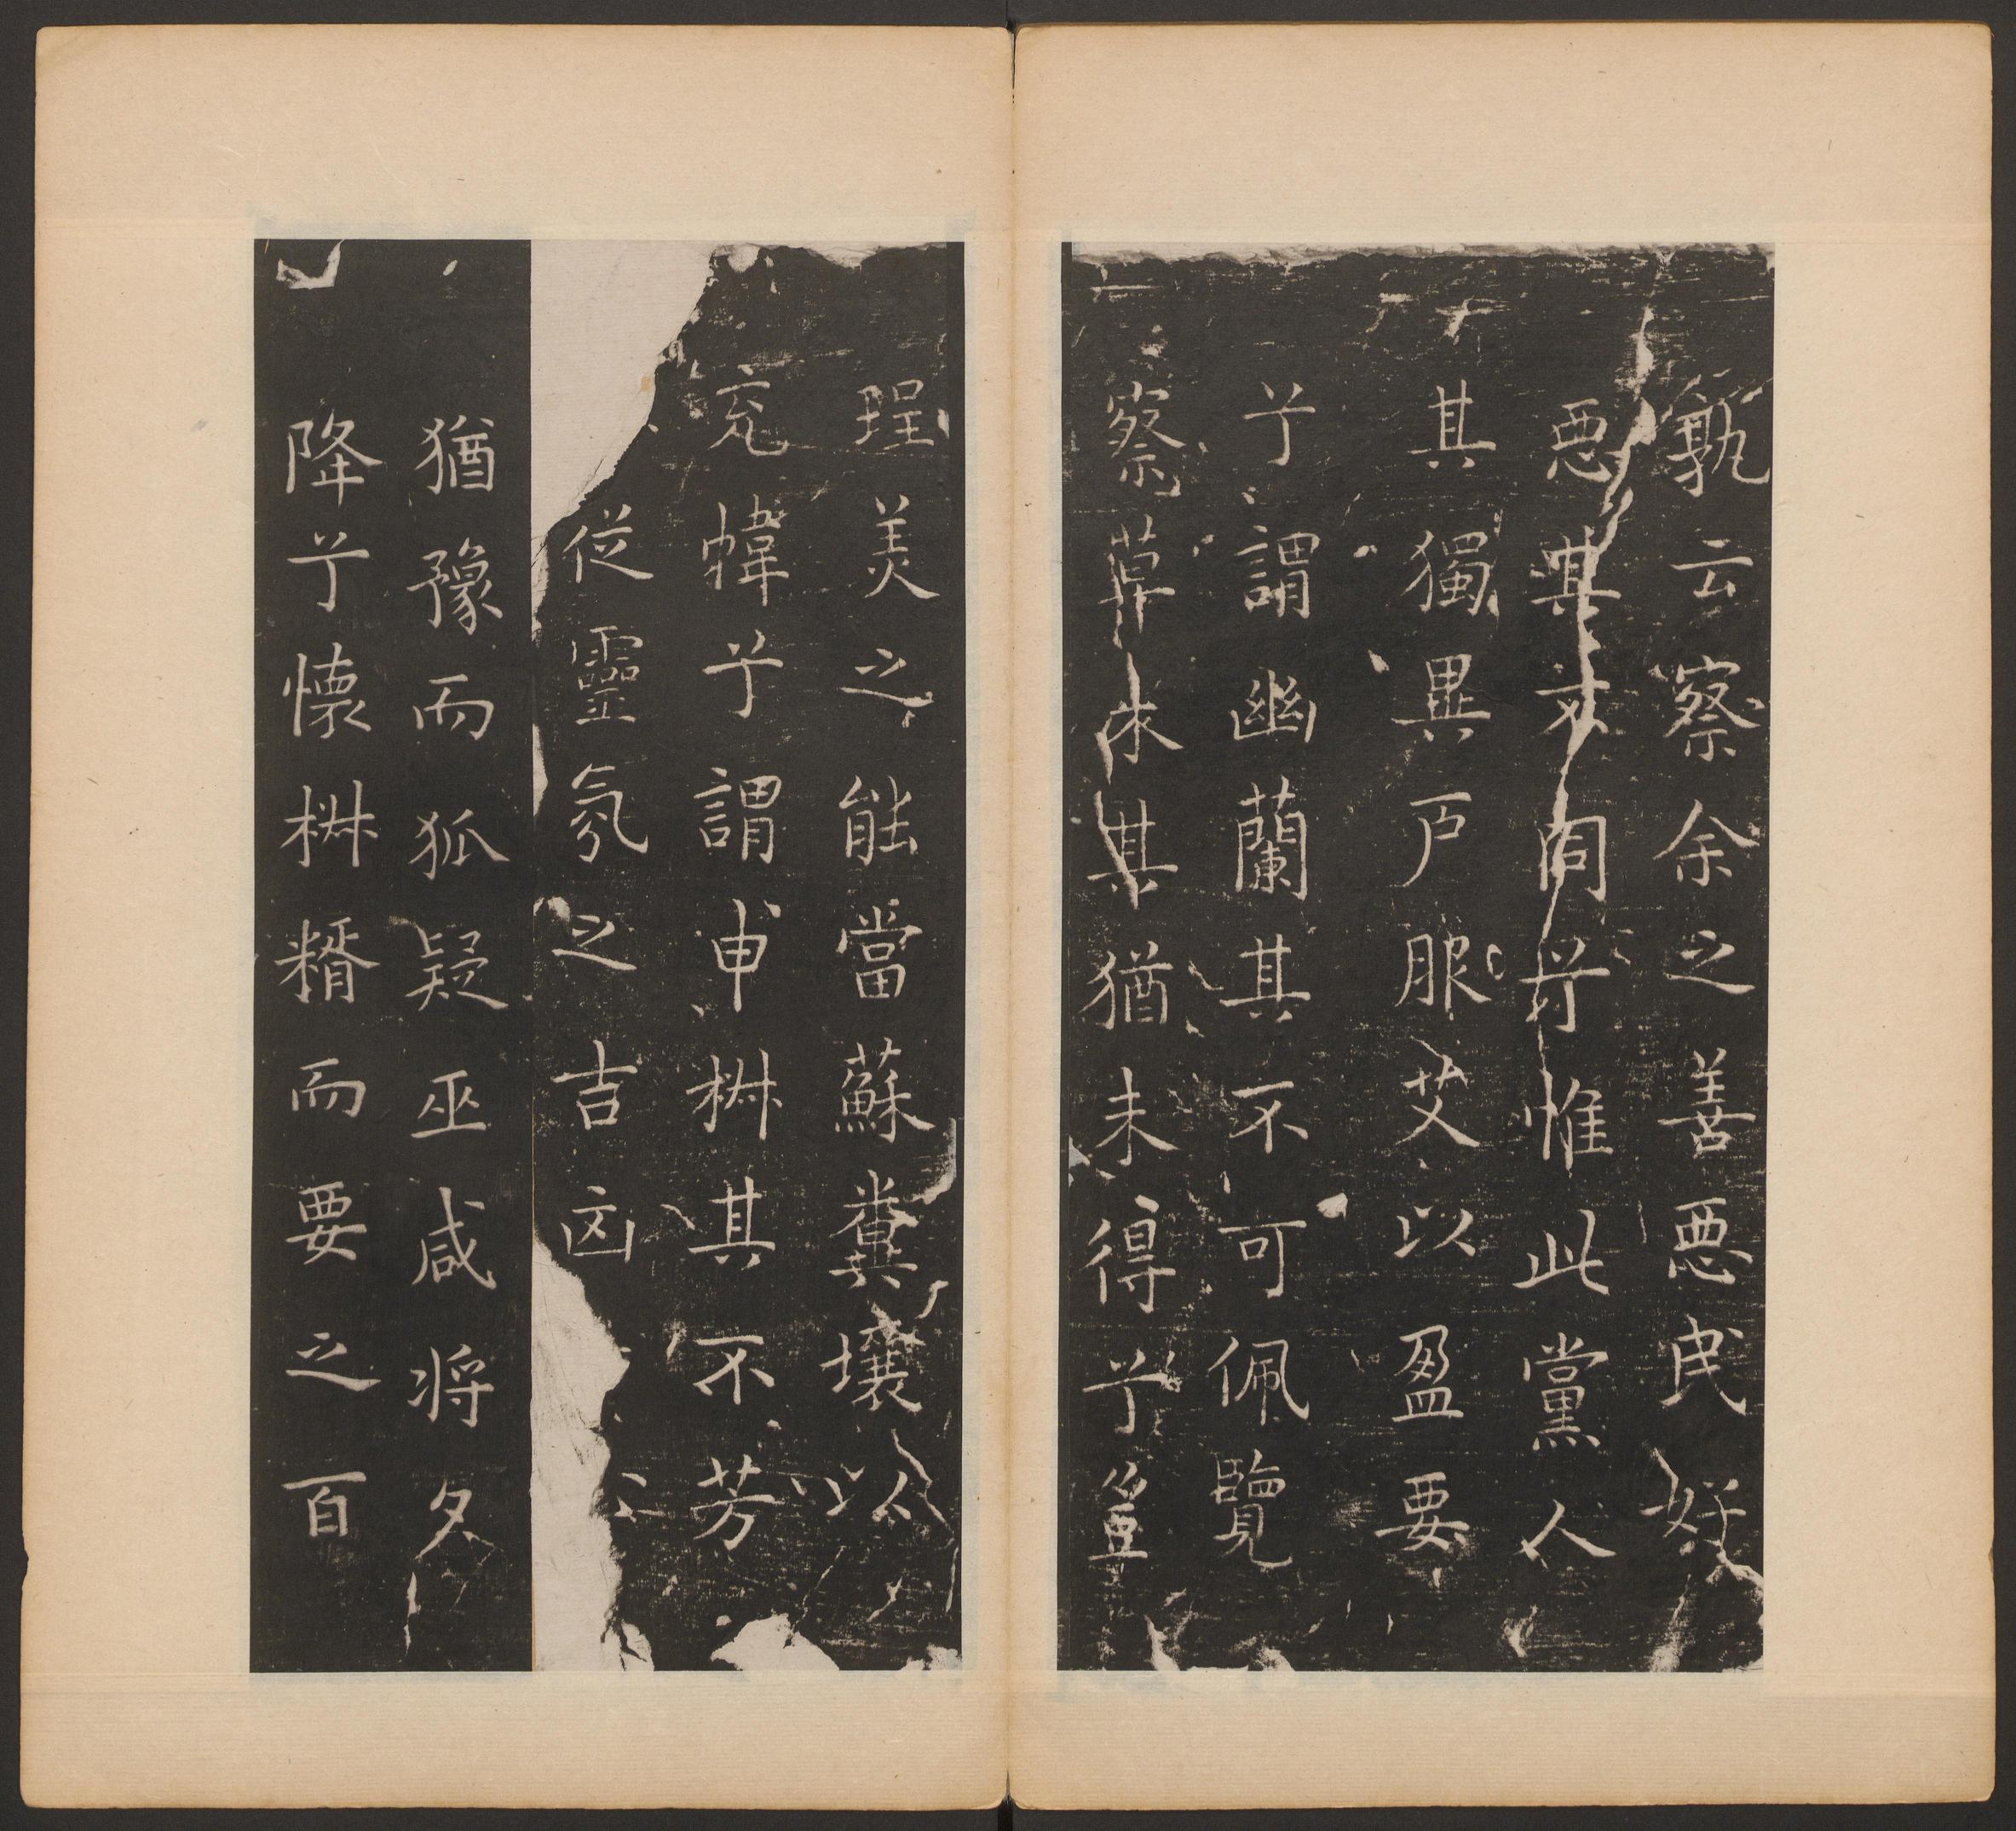 孰云察余之善悪民好
悪其不同兮惟此黨人
其獨異戸服艾以盈要
兮謂幽蘭其不可佩覽
察草木其猶未得兮豈
珵美之能當蘇糞壤以
充幃兮謂申椒其不芳
從靈氛之吉凶
猶豫而狐疑巫咸将夕
降兮懐椒糈而要之百